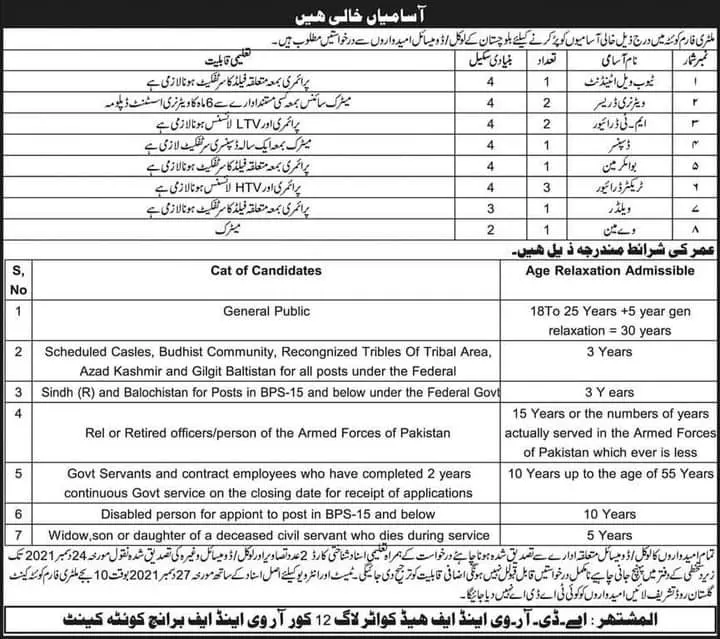 آسامیاں خالی ہیں
ملٹری فارم کوئٹہ میں درج ذیل خالی آسامیوں کو پُر کرنے کیلئے بلوچستان کے لوکل/ڈومیسائل امیدواروں سے درخواستیں مطلوب ہیں۔
نمبر شمار نام آسامی تعداد بنیادی سکیل تعلیمی قابلیت
۱ ٹیوب ویل اٹینڈنٹ 1 4 پرائمری بمعہ متعلقہ فیلڈ کا سرٹیفکیٹ ہونا لازمی ہے
۲ ویٹرنری ڈریسر 2 4 میٹرک سائنس بمعہ کسی مستند ادارے سے 6 ماہ کا ویٹرنری اسسٹنٹ ڈپلومہ
۳ ایم۔ٹی ڈرائیور 2 4 پرائمری اور LTV لائسنس ہونا لازمی ہے
۴ ڈسپنسر 1 4 میٹرک بمعہ ایک سالہ ڈسپنسری سرٹیفکیٹ لازمی ہے
۵ بوائلر مین 1 4 پرائمری بمعہ متعلقہ فیلڈ کا سرٹیفکیٹ ہونا لازمی ہے
۶ ٹریکٹر ڈرائیور 3 4 پرائمری اور HTV لائسنس ہونا لازمی ہے
۷ ویلڈر 1 3 پرائمری بمعہ متعلقہ فیلڈ کا سرٹیفکیٹ ہونا لازمی ہے
۸ وے مین 1 2 میٹرک
عمر کی شرائط مندرجہ ذیل ہیں۔
S, No Cat of Candidates Age Relaxation Admissible
1 General Public 18To 25 Years +5 year gen
relaxation = 30 years
2 Scheduled Casles, Budhist Community, Recongnized Tribles Of Tribal Area, 3 Years
Azad Kashmir and Gilgit Baltistan for all posts under the Federal
3 Sindh (R) and Balochistan for Posts in BPS-15 and below under the Federal Govt 3 Y ears
4 Rel or Retired officers/person of the Armed Forces of Pakistan 15 Years or the numbers of years
actually served in the Armed Forces
of Pakistan which ever is less
5 Govt Servants and contract employees who have completed 2 years 10 Years up to the age of 55 Years
continuous Govt service on the closing date for receipt of applications
6 Disabled person for appiont to post in BPS-15 and below 10 Years
7 Widow,son or daughter of a deceased civil servant who dies during service 5 Years
تمام امیدواروں کا لوکل/ڈومیسائل متعلقہ ادارے سے تصدیق شدہ ہونا چاہئے درخواست کے ہمراہ تعلیمی اسناد شناختی کارڈ 2 عدد تصاویر اور لوکل/ڈومیسائل وغیرہ کی تصدیق شدہ نقول مورخہ 24 دسمبر 2021 تک
زیر دستخطی کے دفتر میں پہنچ جانی چاہیے نامکمل درخواستیں قابل قبول نہیں ہونگی اضافی قابلیت کو ترجیح دی جائیگی۔ ٹیسٹ اور انٹرویو کیلئے اصل اسناد کے ساتھ مورخہ 27 دسمبر 2021 بوقت 10 بجے ملٹری فارم کوئٹہ کینٹ
گلستان روڈ تشریف لائیں امیدواروں کو کوئی ٹی اے ڈی اے نہیں دیا جائیگا۔
المشتہر: اے۔ڈی۔آر۔وی اینڈ ایف ہیڈ کوارٹر لاگ 12 کور آر وی اینڈ ایف برانچ کوئٹہ کینٹ